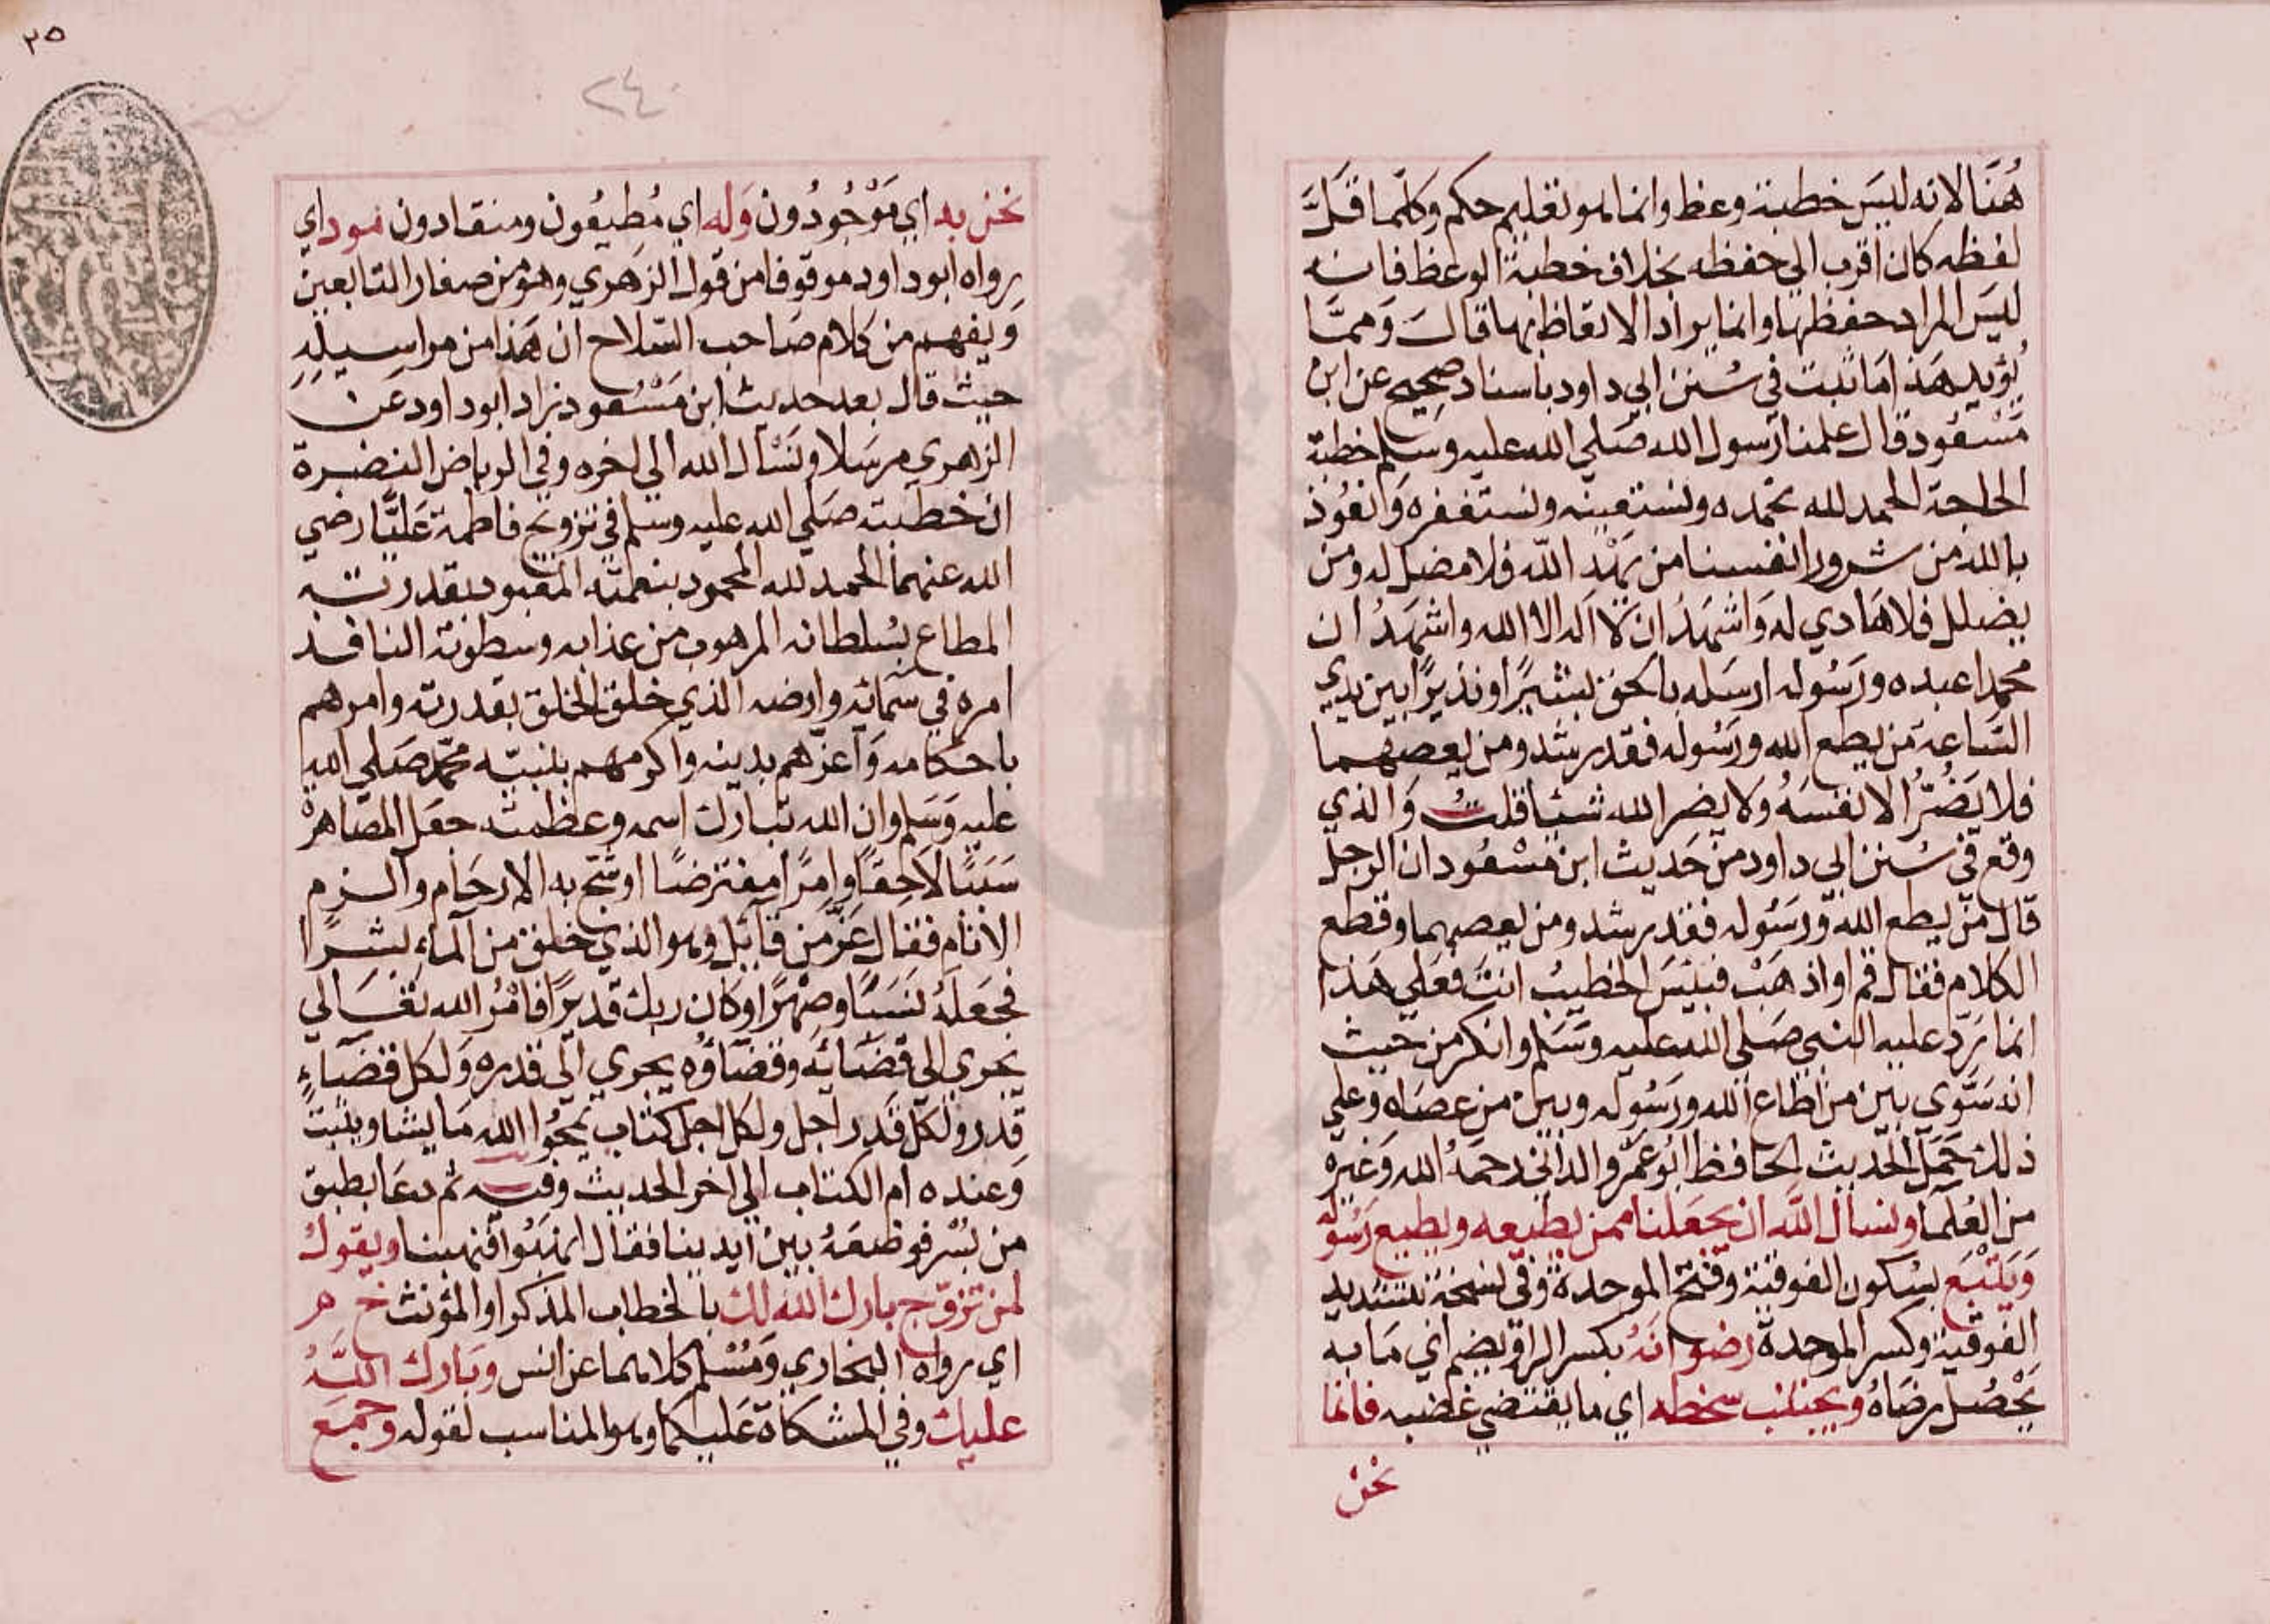 هُنَا لانه ليسَ خطبة وعظ وانما هو تعليم حكم وكلّما قَلَّ
لفظه كان اقرب الي حفظه بخلاف خطبة الوعظ فانه
ليسَ المراد حفظها وانما يراد الاتعاظ بها قالَ وَممَّا
يُؤيد هَذا مَا ثبت في سُنن ابي داود باسناد صحِيح عن ابن
مَسْعُود قال علمنا رسول الله صَلي الله عليه وسَلم خطبة
الحاجة الحمد لله نحمده ونستعينه ونستغفره وَنعُوذ
بالله من شرور انفسنا من يَهْد الله فلا مضل له ومن
يضلل فلا هَادي له وَاشهَدُ ان لا اله الا الله واشهَدُ ان
محمدا عبده ورَسُوله ارسَله بالحق بشيرًا ونذيرًا بين يدي
السَّاعة مَن يطع الله ورَسُوله فقد رشد ومن يعصهما
فلا يَضُرُّ الا نفسَهُ ولا يضر الله شيئا قلتُ وَالذي
وقع في سُنن ابي داود من حَديث ابن مَسْعُود ان الرجل
قال مَن يطع الله ورَسُوله فقد رشد ومن يعصهما وقطع
الكلام فقال قم او اذهَبْ فبئسَ الخطيبُ انتَ فعَلي هَذا
انما رَدّ عليه النبي صَلي الله عليه وسَلم وانكر من حيث
انه سَوّي بين من اطاع الله ورَسُوله وبين من عصَاه وعلي
ذلك حَمَل الحَديث الحَافظ ابُو عَمرو الداني رحمَهُ الله وَغيره
من العُلمَا ونسأل الله ان يجعَلنا ممن يطيعه ويطيع رَسُوله
وَيَتْبَع بسُكون الفوقية وفتح الموحدة وفي نسخة بتشديد
الفوقية وكسر الموحدة رضوانهُ بكسر الرا ويضم اي مَا به
يَحْصُل رضَاهُ ويجتنب سخطه اي ما يقتضي غضبه فانما
نحن
٢٥
٢٤
نحن به اي مَوْجُودُون وَله اي مُطيعُون ومنقادون مود اي
رواه ابو داود موقوفا من قول الزهري وهو من صغار التابعين
وَيفهم من كلام صَاحب السّلاح ان هَذا من مراسيله
حيث قال بعد حديث ابن مَسْعُود زاد ابو داود عن
الزهري مرسَلا ونَسْأل الله الي اخره وفي الرياض النضرة
ان خطبته صَلي الله عليه وسلم في تزويج فاطمة عَليًّا رضي
الله عنهما الحمد لله المحمود بنعمته المعبود بقدرته
المطاع بسُلطانه المرهوب من عذابه وسطوته النافذ
امره في سَمائه وارضه الذي خلق الخلق بقدرته وامرهم
باحكامه وَاعزهم بدينه واكرمهم بنبيّه محمّد صَلي الله
عليه وسَلم وان الله تبارك اسمه وعظمته جعَل المصَاهرة
سَببًا لاَحِقًا وامرًا مفترضًا اوشج به الارحَام والزم
الانام فقال عَزّ من قائل وهو الذي خلق من الماء بشرًا
فجعَلَهُ نَسَبًا وصِهْرًا وكان ربك قديرًا فامْرُ الله تعَالي
يجري الي قضَائه وقضَاؤه يجري الي قدره وَلكل قضَاءٍ
قدر ولكل قدر اجل ولكل اجل كتاب يمحُوا الله مَا يشا ويثبت
وَعنده ام الكتاب الي اخر الحديث وفيه ثم دعَا بطبق
من بُسْر فوضعَهُ بين ايدينا فقال انهَبُوا فنهبنا ويقول
لمن تزوّج بارك الله لك بالخطاب المذكر او المؤنث خ م
اي رواه البخاري وَمُسْلم كلاهما عن انس وبَارك اللهُ
عليك وفي المشكاة عَليكما وهو المناسب لقوله وجمع